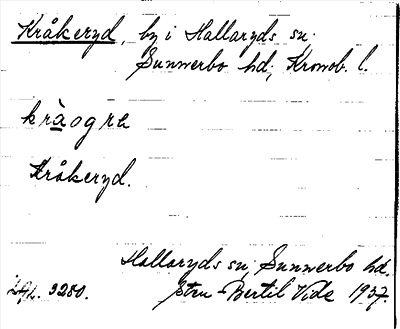 Kråkeryd, by i Hallaryds sn.
Sunnerbo hd, Kronob. l.
kràogre
Kråkeryd.
Hallaryds sn, Sunnerbo hd.
3280. Sten-Bertil Vide 1937.